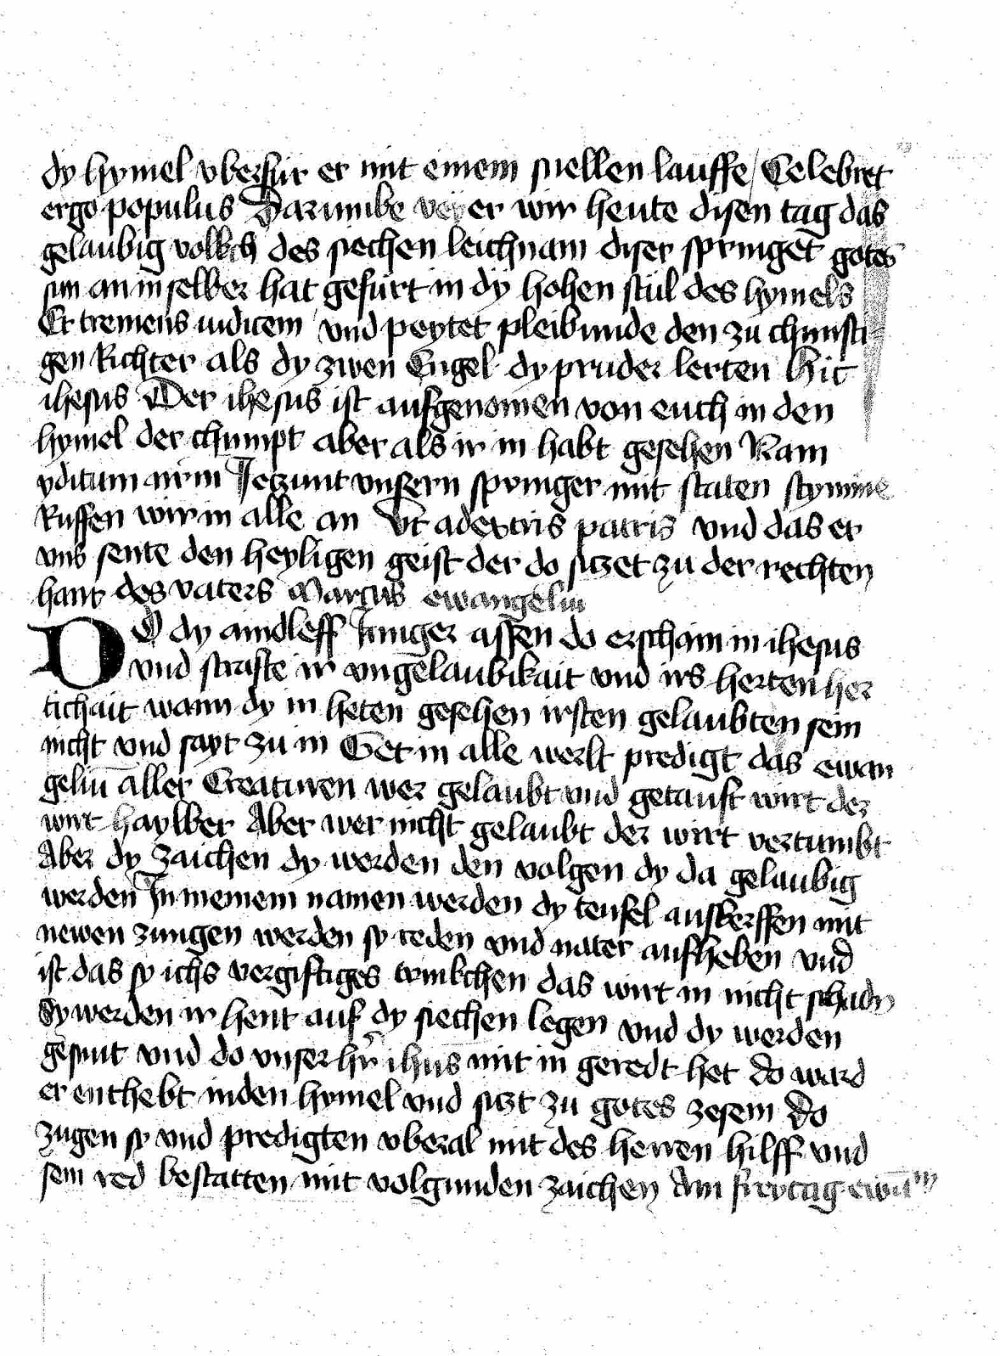 dy hymel vberfur er mit einem snellen lauffe / Celebret
ergo populus Darumbe veyer wir heute disen tag das
gelaubig volkch des siechen leichnam diser springet gotes
sun an im selber hat gefurt in dy hohen stul des hymels
Et tremens iudicem vnd peytet pleibunde den zu chunfti-
gen Richter als dy zwen Engel dy pruder lerten Hic
ihesus Der ihesus ist aufgenomen von euch in den
hymel der chumpt aber als ir in habt gesehen Nam
ditum Jetzunt vnsern springer mit staten stymme
Ruffen wir in alle an Vt adextris patris vnd das er
vns sente den heyligen geist der do sitzet zu der rechten
hant des vaters Marcus ewangeliu
DO dy aindleff Junger assen do erschain in ihesus
vnd strafte ir vngelaubikait vnd irs herten her
tichait wann dy in heten gesehen irsten gelaubten sein
nicht vnd sayt zu in Get in alle werlt predigt das ewan
geliū aller Creaturen wer gelaubt vnd getauft wirt der
wirt haylber Aber wer nicht gelaubt der wirt vertumbt
Aber dy zaichen dy werden den volgen dy da gelaubig
werden In meinem namen werden dy teufel auskerffen mit
newen zungen werden sy reden vnd nater aufheben vnd
ist das sy ichs vergiftiges trinkchen das wirt in nicht schadn
Sy werden ir hent auf dy siechen legen vnd dy werden
gesunt vnd do vnser hr̄ ihus mit in geredt het do ward
er enthebt inden hymel vnd sitzt zu gotes zesem Do
zugen sy vnd predigten vberal mit des herren hilff vnd
sein red bestatten mit volgunden zaichen Am freytag ewām